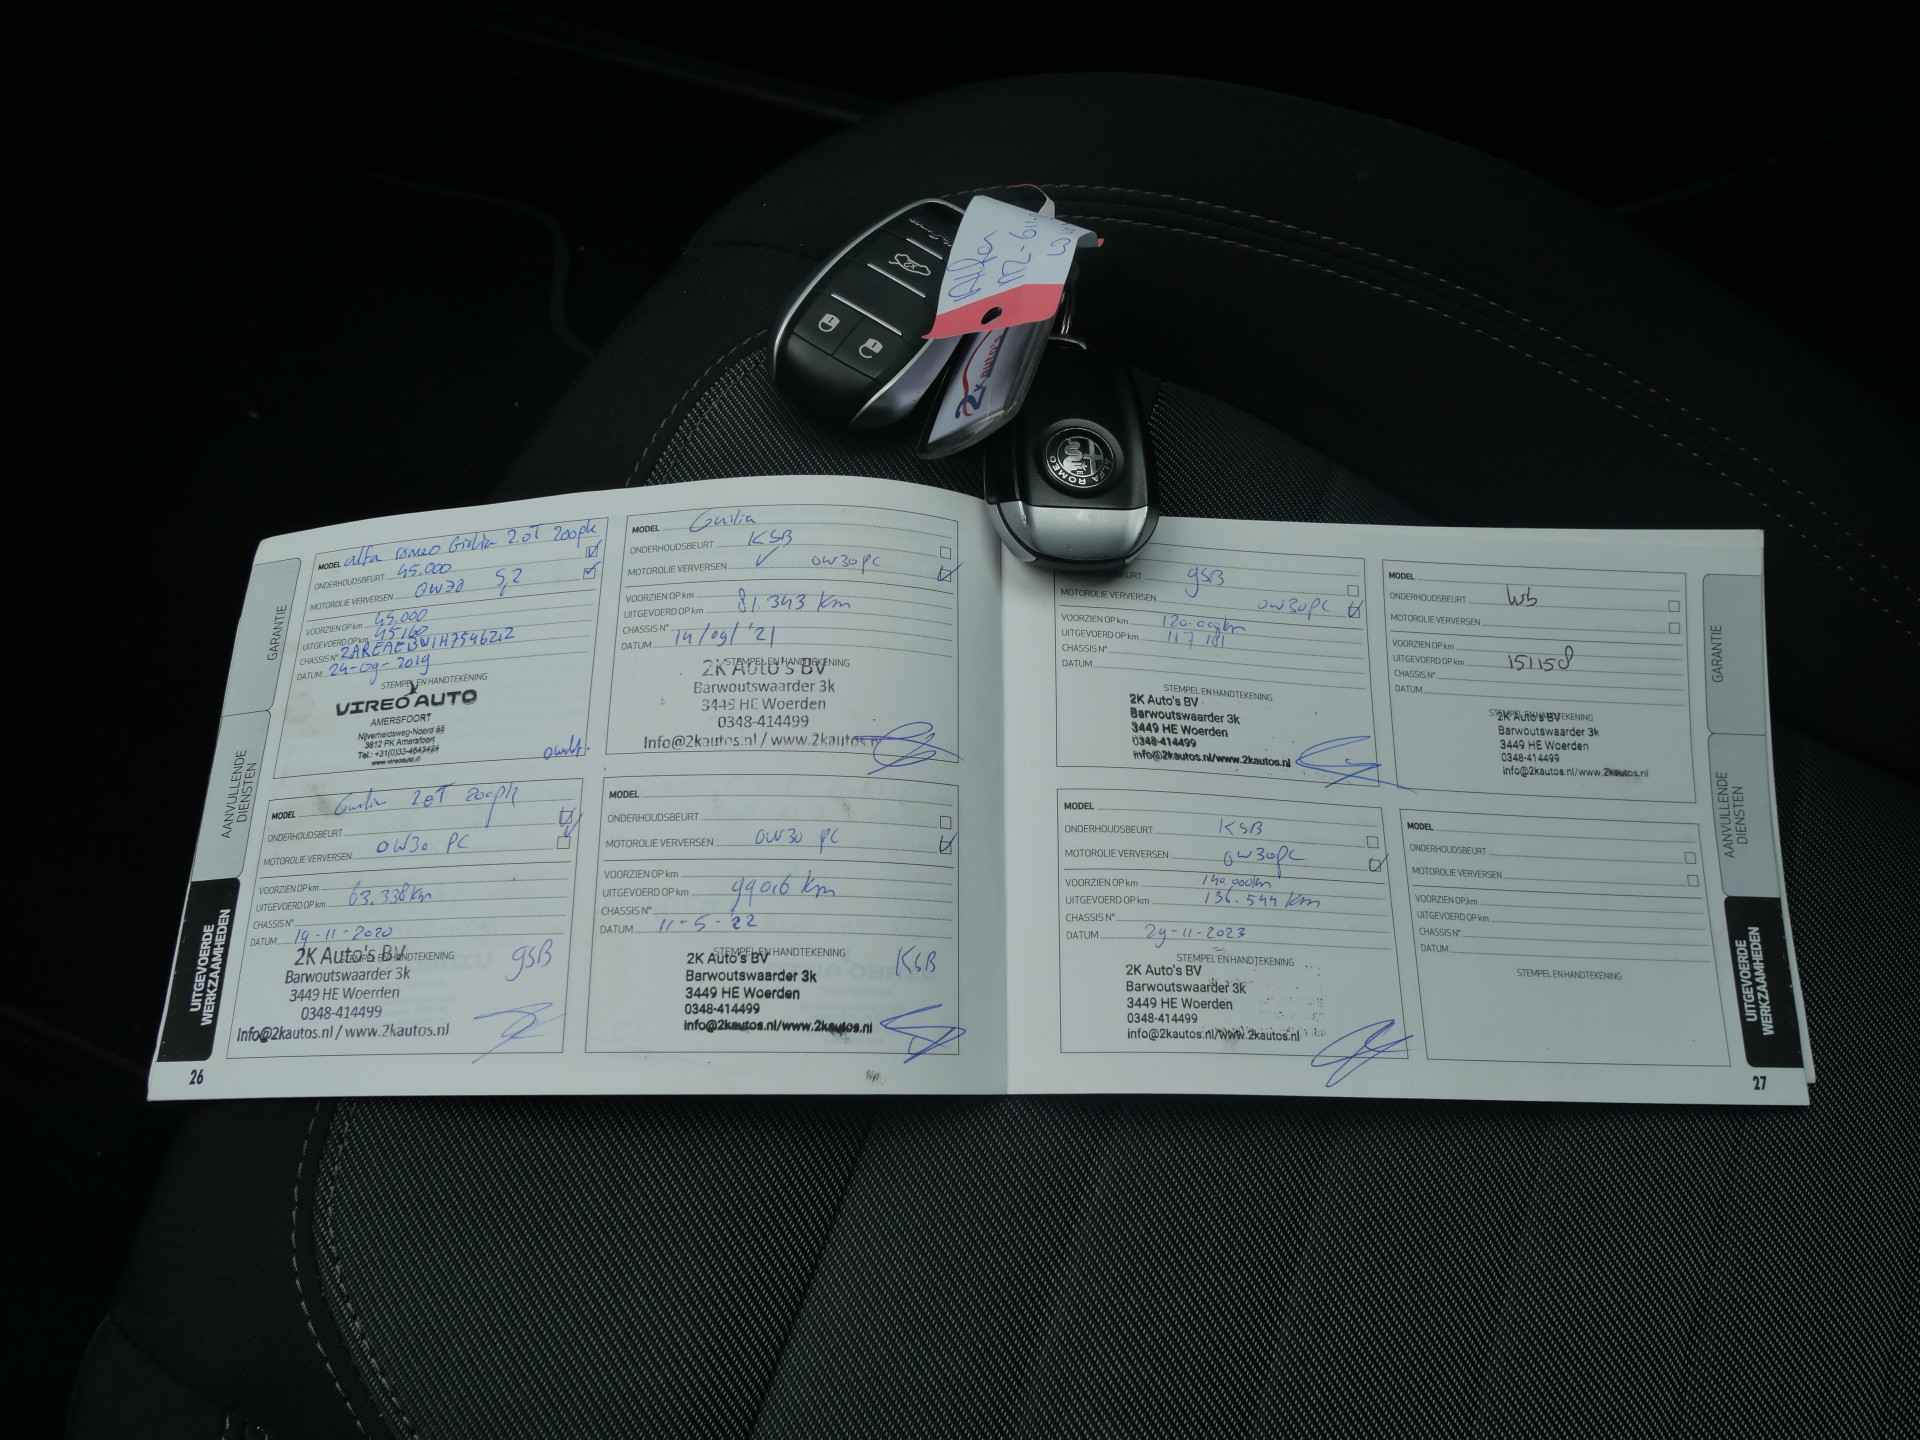 Alfa
2K autos
ALFA ROMEO
GARANTIE
AANVULLENDE
DIENSTEN
UITGEVOERDE
WERKZAAMHEDEN
MODEL alfa romeo Giulia 2.0T 200pk
ONDERHOUDSBEURT 45.000
MOTOROLIE VERVERSEN 0W30 5,2
VOORZIEN OP km 45.000
UITGEVOERD OP km
CHASSIS N°
DATUM 24-09-2019
STEMPEL EN HANDTEKENING
VIREO AUTO
AMERSFOORT
Nijverheidsweg-Noord
3812 PK Amersfoort
www.vireoauto.nl
MODEL Giulia 2.0T 200pk
ONDERHOUDSBEURT
MOTOROLIE VERVERSEN 0W30 PC
VOORZIEN OP km
UITGEVOERD OP km 63.338km
CHASSIS N°
DATUM 19-11-2020
STEMPEL EN HANDTEKENING
2K Auto's BV
gSB
Barwoutswaarder 3k
3449 HE Woerden
0348-414499
Info@2kautos.nl / www.2kautos.nl
26
MODEL Giulia
ONDERHOUDSBEURT KSB
MOTOROLIE VERVERSEN ✓ 0W30PC
VOORZIEN OP km
UITGEVOERD OP km 81.343 km
CHASSIS N°
DATUM 14/09/'21
STEMPEL EN HANDTEKENING
2K Auto's BV
Barwoutswaarder 3k
3449 HE Woerden
0348-414499
Info@2kautos.nl / www.2kautos.nl
MODEL
ONDERHOUDSBEURT
MOTOROLIE VERVERSEN 0W30 PC
VOORZIEN OP km
UITGEVOERD OP km 99016 km
CHASSIS N°
DATUM 11-5-'22
STEMPEL EN HANDTEKENING
2K Auto's BV
KSB
Barwoutswaarder 3k
3449 HE Woerden
0348-414499
info@2kautos.nl/www.2kautos.nl
BEURT gSB
MOTOROLIE VERVERSEN 0W30PC
VOORZIEN OP km 120.000km
UITGEVOERD OP km 117.181
CHASSIS N°
DATUM
STEMPEL EN HANDTEKENING
2K Auto's BV
Barwoutswaarder 3k
3449 HE Woerden
0348-414499
info@2kautos.nl/www.2kautos.nl
MODEL
ONDERHOUDSBEURT KSB
MOTOROLIE VERVERSEN 0W30PC
VOORZIEN OP km 140.000km
UITGEVOERD OP km 136.544 km
CHASSIS N°
DATUM 29-11-2023
STEMPEL EN HANDTEKENING
2K Auto's BV
Barwoutswaarder 3k
3449 HE Woerden
0348-414499
info@2kautos.nl/www.2kautos.nl
MODEL
ONDERHOUDSBEURT Wb
MOTOROLIE VERVERSEN
VOORZIEN OP km
UITGEVOERD OP km 151158
CHASSIS N°
DATUM
STEMPEL EN HANDTEKENING
2K Auto's BV
Barwoutswaarder 3k
3449 HE Woerden
0348-414499
info@2kautos.nl/www.2kautos.nl
MODEL
ONDERHOUDSBEURT
MOTOROLIE VERVERSEN
VOORZIEN OP km
UITGEVOERD OP km
CHASSIS N°
DATUM
STEMPEL EN HANDTEKENING
GARANTIE
AANVULLENDE
DIENSTEN
UITGEVOERDE
WERKZAAMHEDEN
27